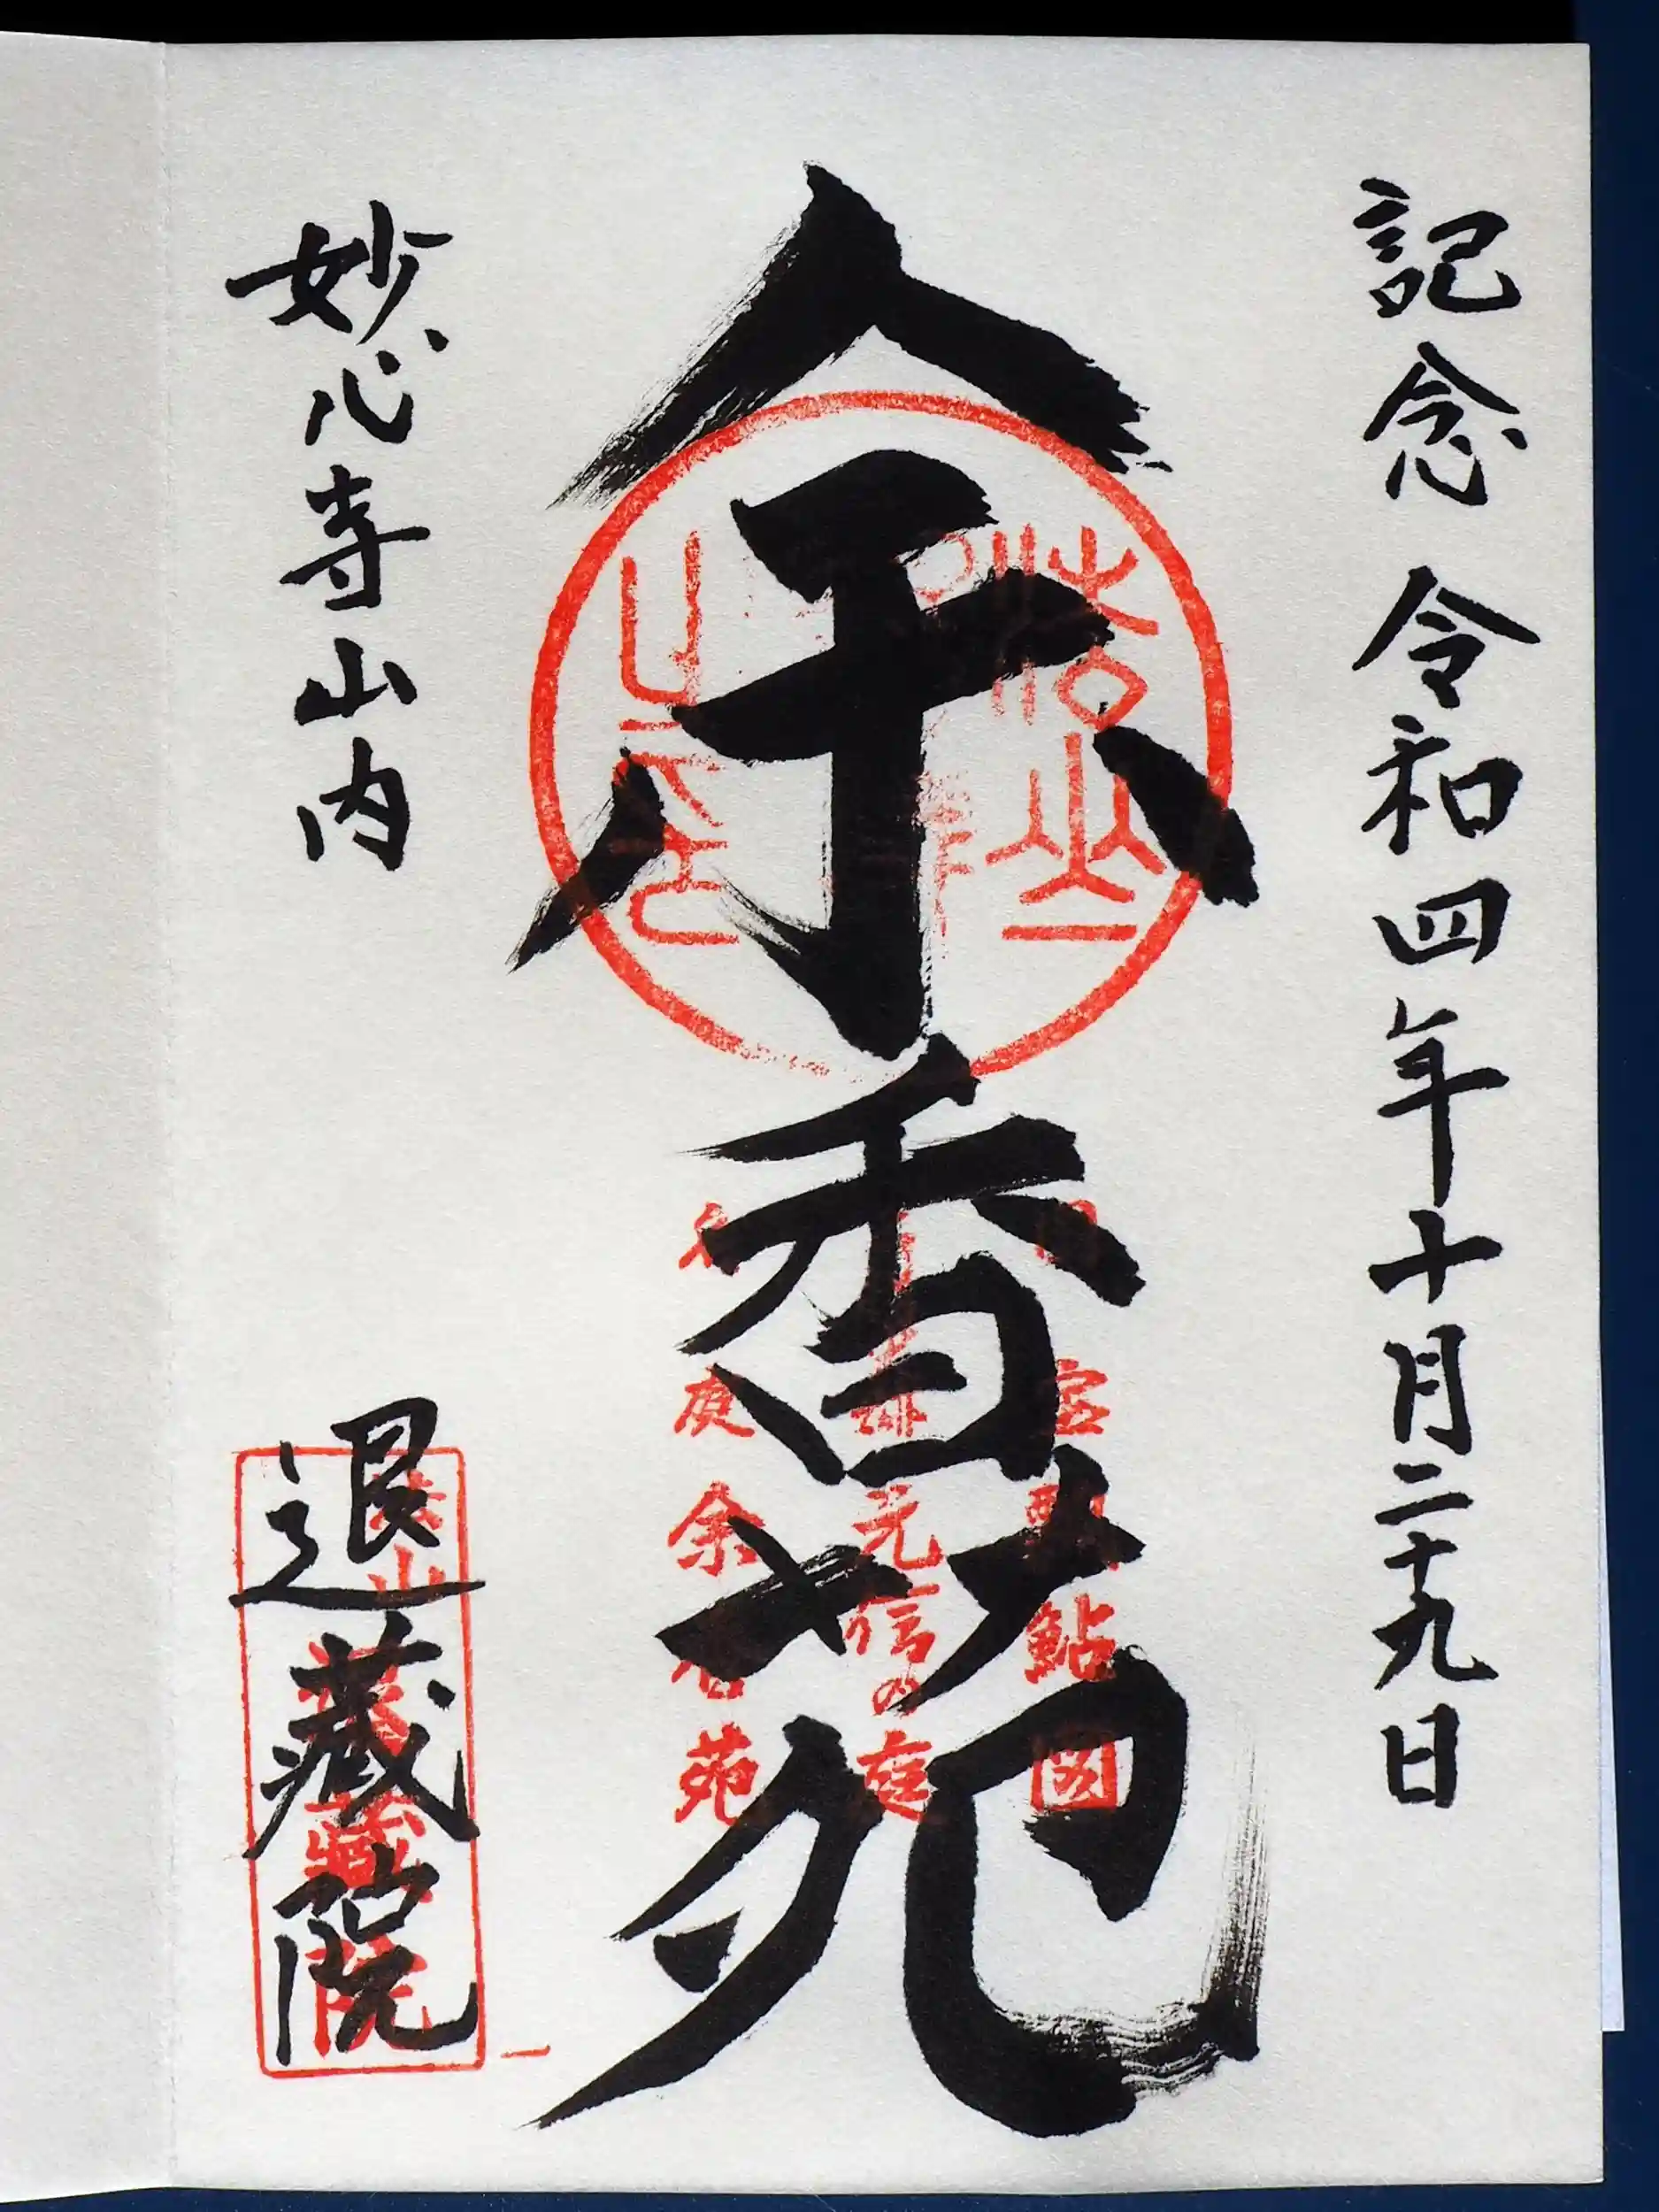 記念 令和四年十月二十九日
余香苑
国宝瓢鮎図
元信の庭
名庭余香苑
妙心寺山内
退蔵院